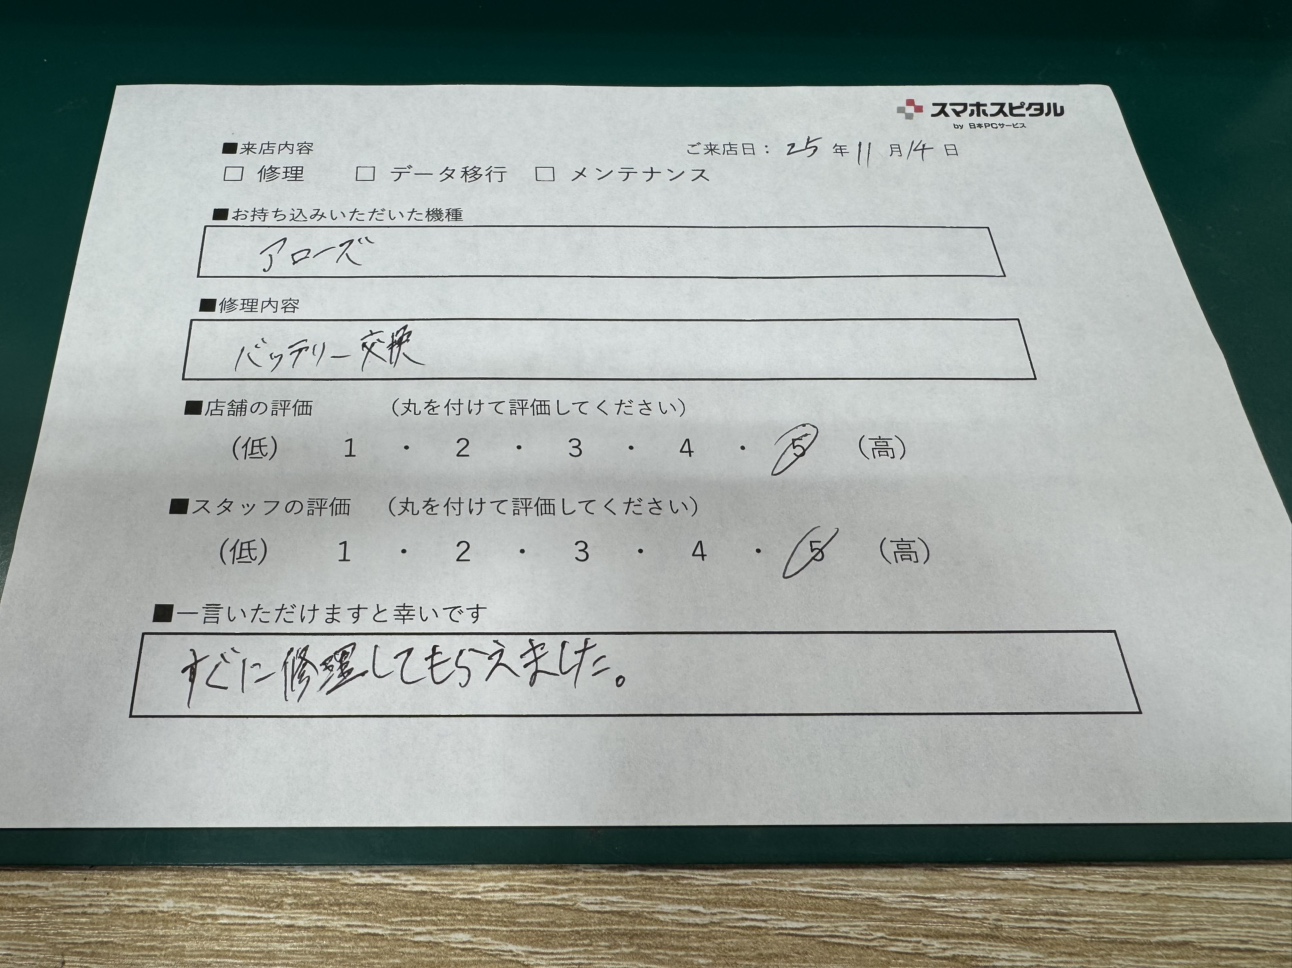 スマホスピタル
by 日本PCサービス
■来店内容
ご来店日： 25 年 11 月 14 日
□ 修理 □ データ移行 □ メンテナンス
■お持ち込みいただいた機種
アローズ
■修理内容
バッテリー交換
■店舗の評価 （丸を付けて評価してください）
（低） 1 ・ 2 ・ 3 ・ 4 ・ 5 （高）
■スタッフの評価 （丸を付けて評価してください）
（低） 1 ・ 2 ・ 3 ・ 4 ・ 5 （高）
■一言いただけますと幸いです
すぐに修理してもらえました。